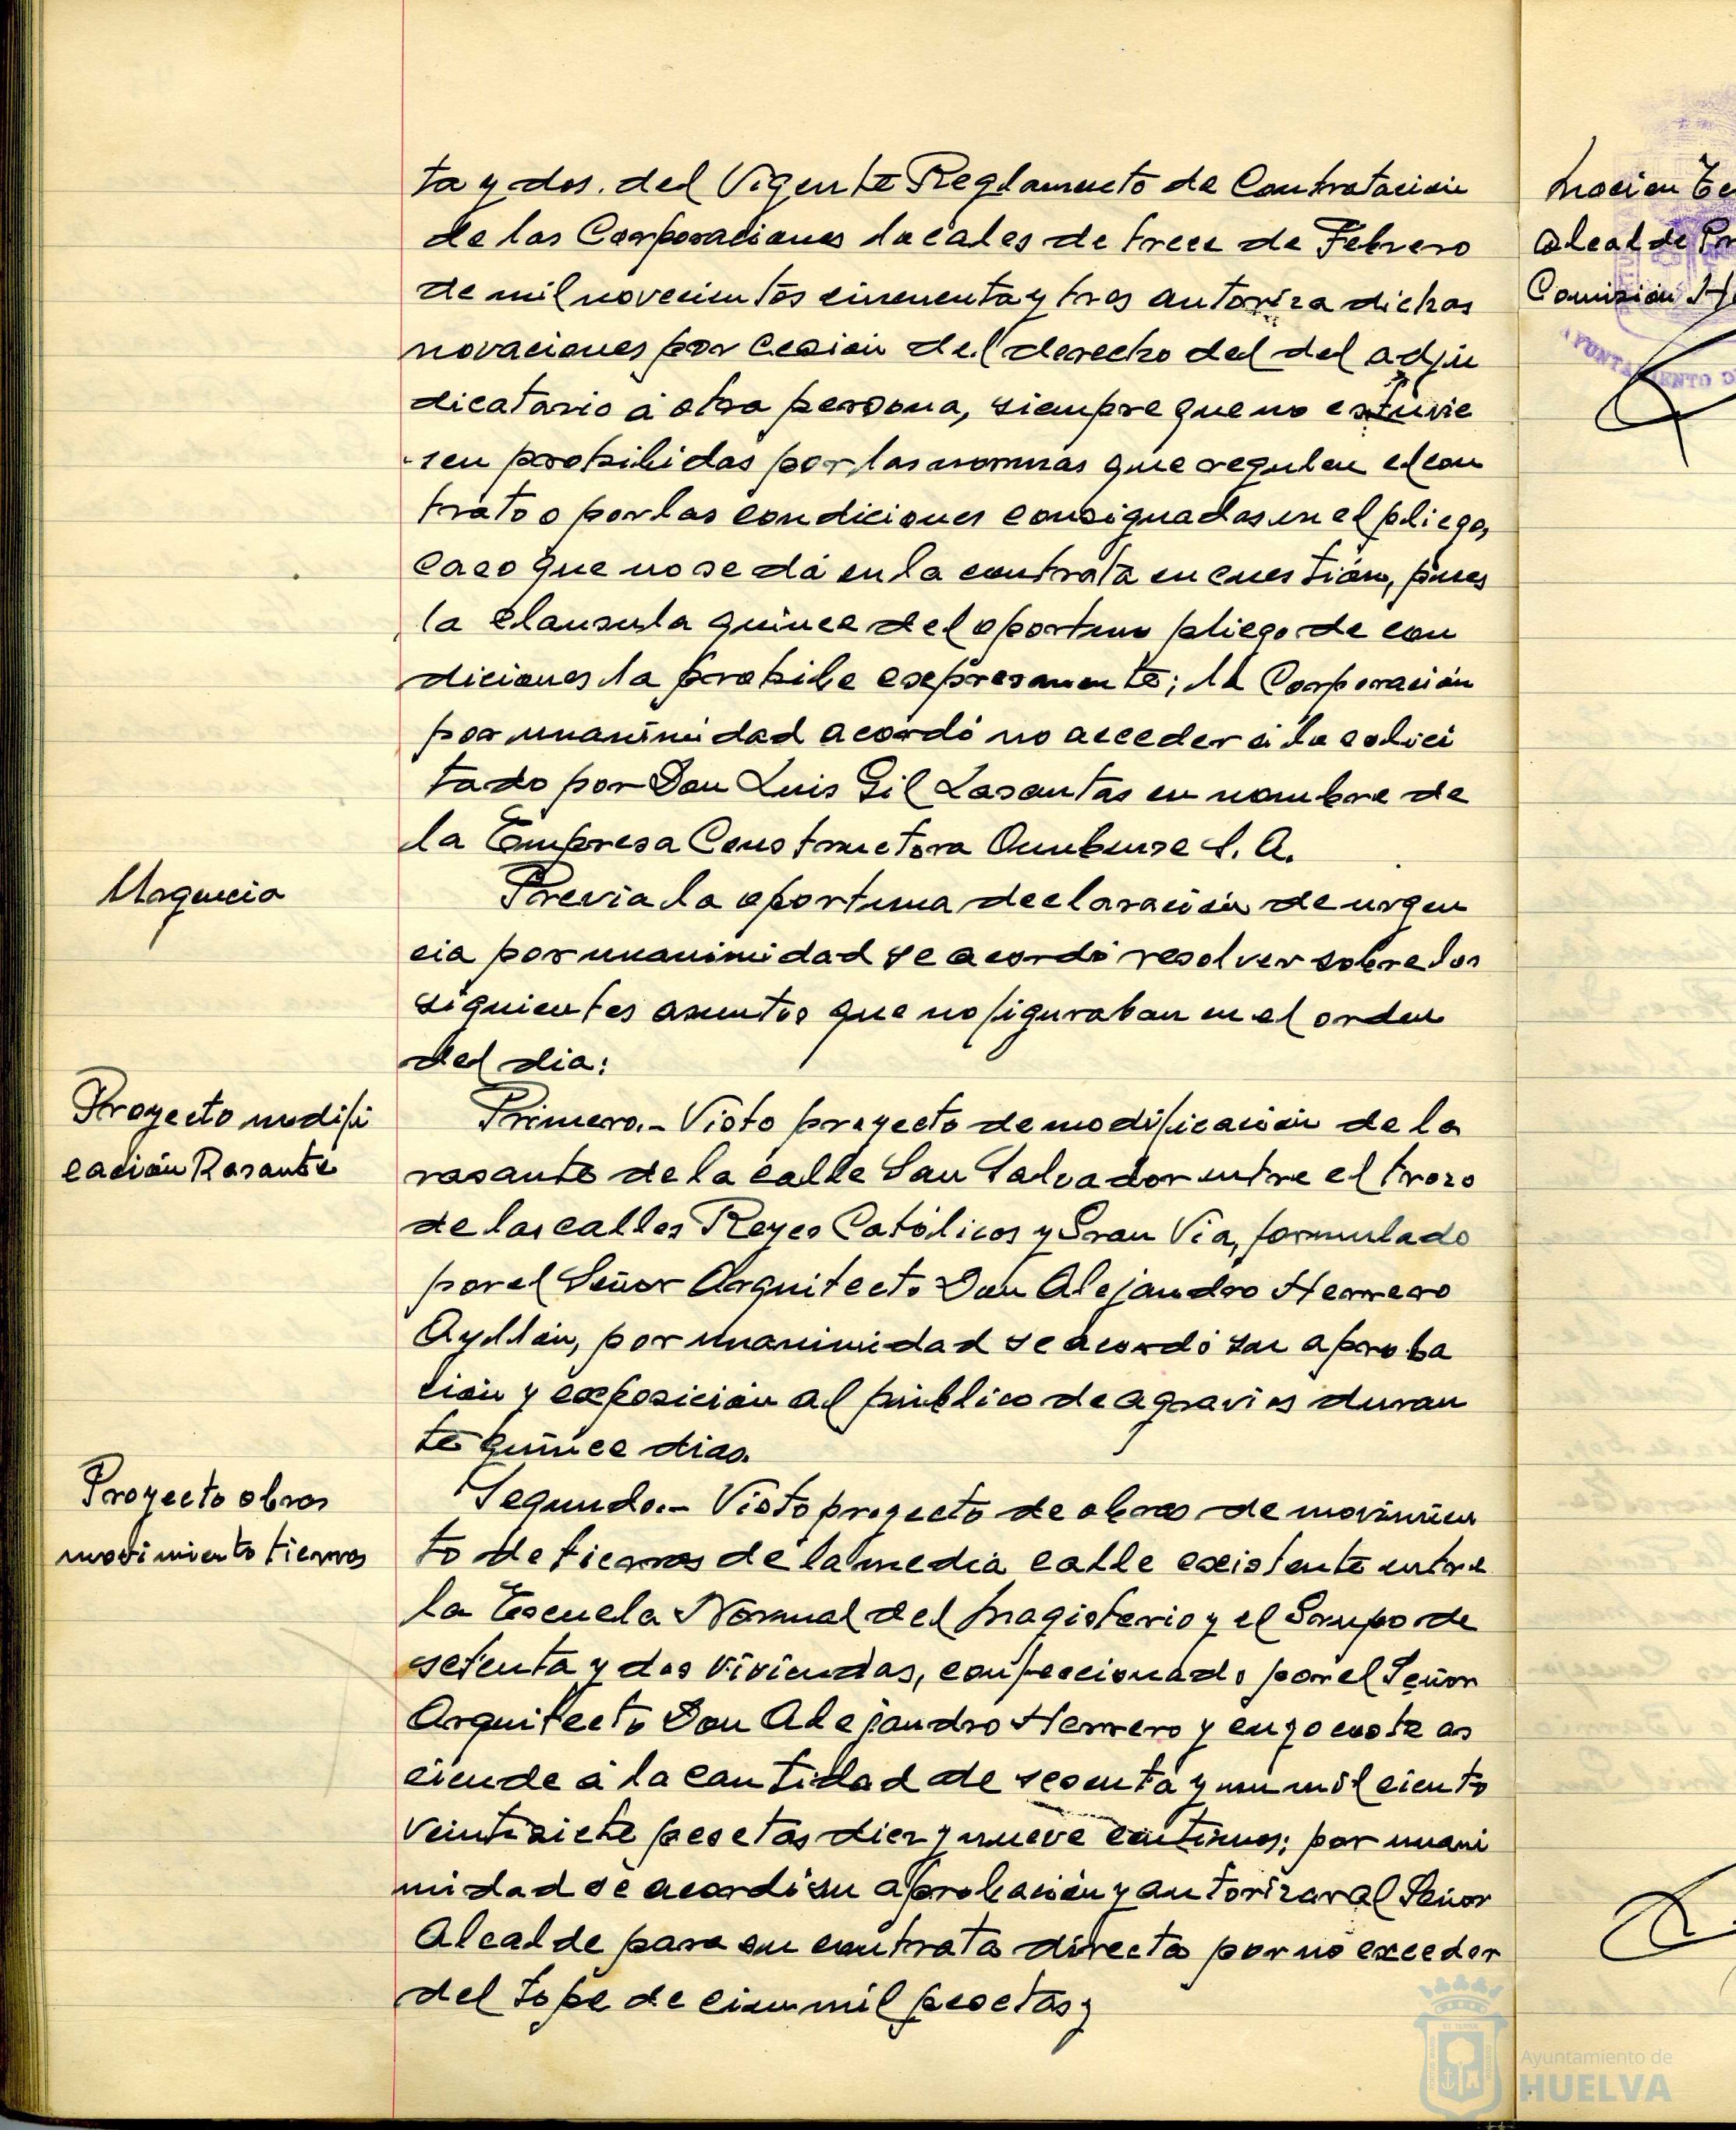 ta y dos. del Vigente Reglamento de Contratación
de las Corporaciones locales de trece de Febrero
de mil novecientos cincuenta y tres autoriza dichas
novaciones por cesión del derecho del del adju
dicatario á otra persona, siempre que no estuvie
sen prohibidas por las normas que regulen el con
trato o por las condiciones consignadas en el pliego,
caso que no se dá en la contrata en cuestión, pues
la clausula quince del oportuno pliego de con
diciones la prohibe expresamente; la Corporación
por unanimidad acordó no acceder á lo solici
tado por Don Luis Gil Lasantas en nombre de
la Empresa Constructora Onubense S. A.
Urgencia
Previa la oportuna declaración de urgen
cia por unanimidad se acordó resolver sobre los
siguientes asuntos que no figuraban en el orden
del dia:
Proyecto modifi
cación Rasante
Primero.- Visto proyecto de modificación de la
rasante de la calle San Salvador entre el trozo
de las calles Reyes Católicos y Gran Via, formulado
por el Señor Arquitecto Don Alejandro Herrero
Ayllón, por unanimidad se acordó su aproba
ción y exposición al público de agravios duran
te quince dias.
Proyecto obras
movimiento tierras
Segundo.- Visto proyecto de obras de movimien
to de tierras de la media calle existente entre
la Escuela Normal del Magisterio y el Grupo de
setenta y dos viviendas, confeccionado por el Señor
Arquitecto Don Alejandro Herrero y cuyo coste as
ciende á la cantidad de sesenta y un mil ciento
veintisiete pesetas diez y nueve centimos; por unani
midad se acordó su aprobación y autorizar al Señor
Alcalde para su contrata directa por no exceder
del tope de cien mil pesetas y
Moción Te
Alcalde Pr
Comisión H
AYUNTAMIENTO D
Ayuntamiento de
HUELVA